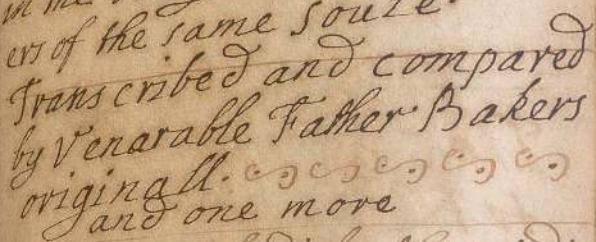 ers of the same soule
Transcribed and compared
by Venarable Father Bakers
originall.
and one more